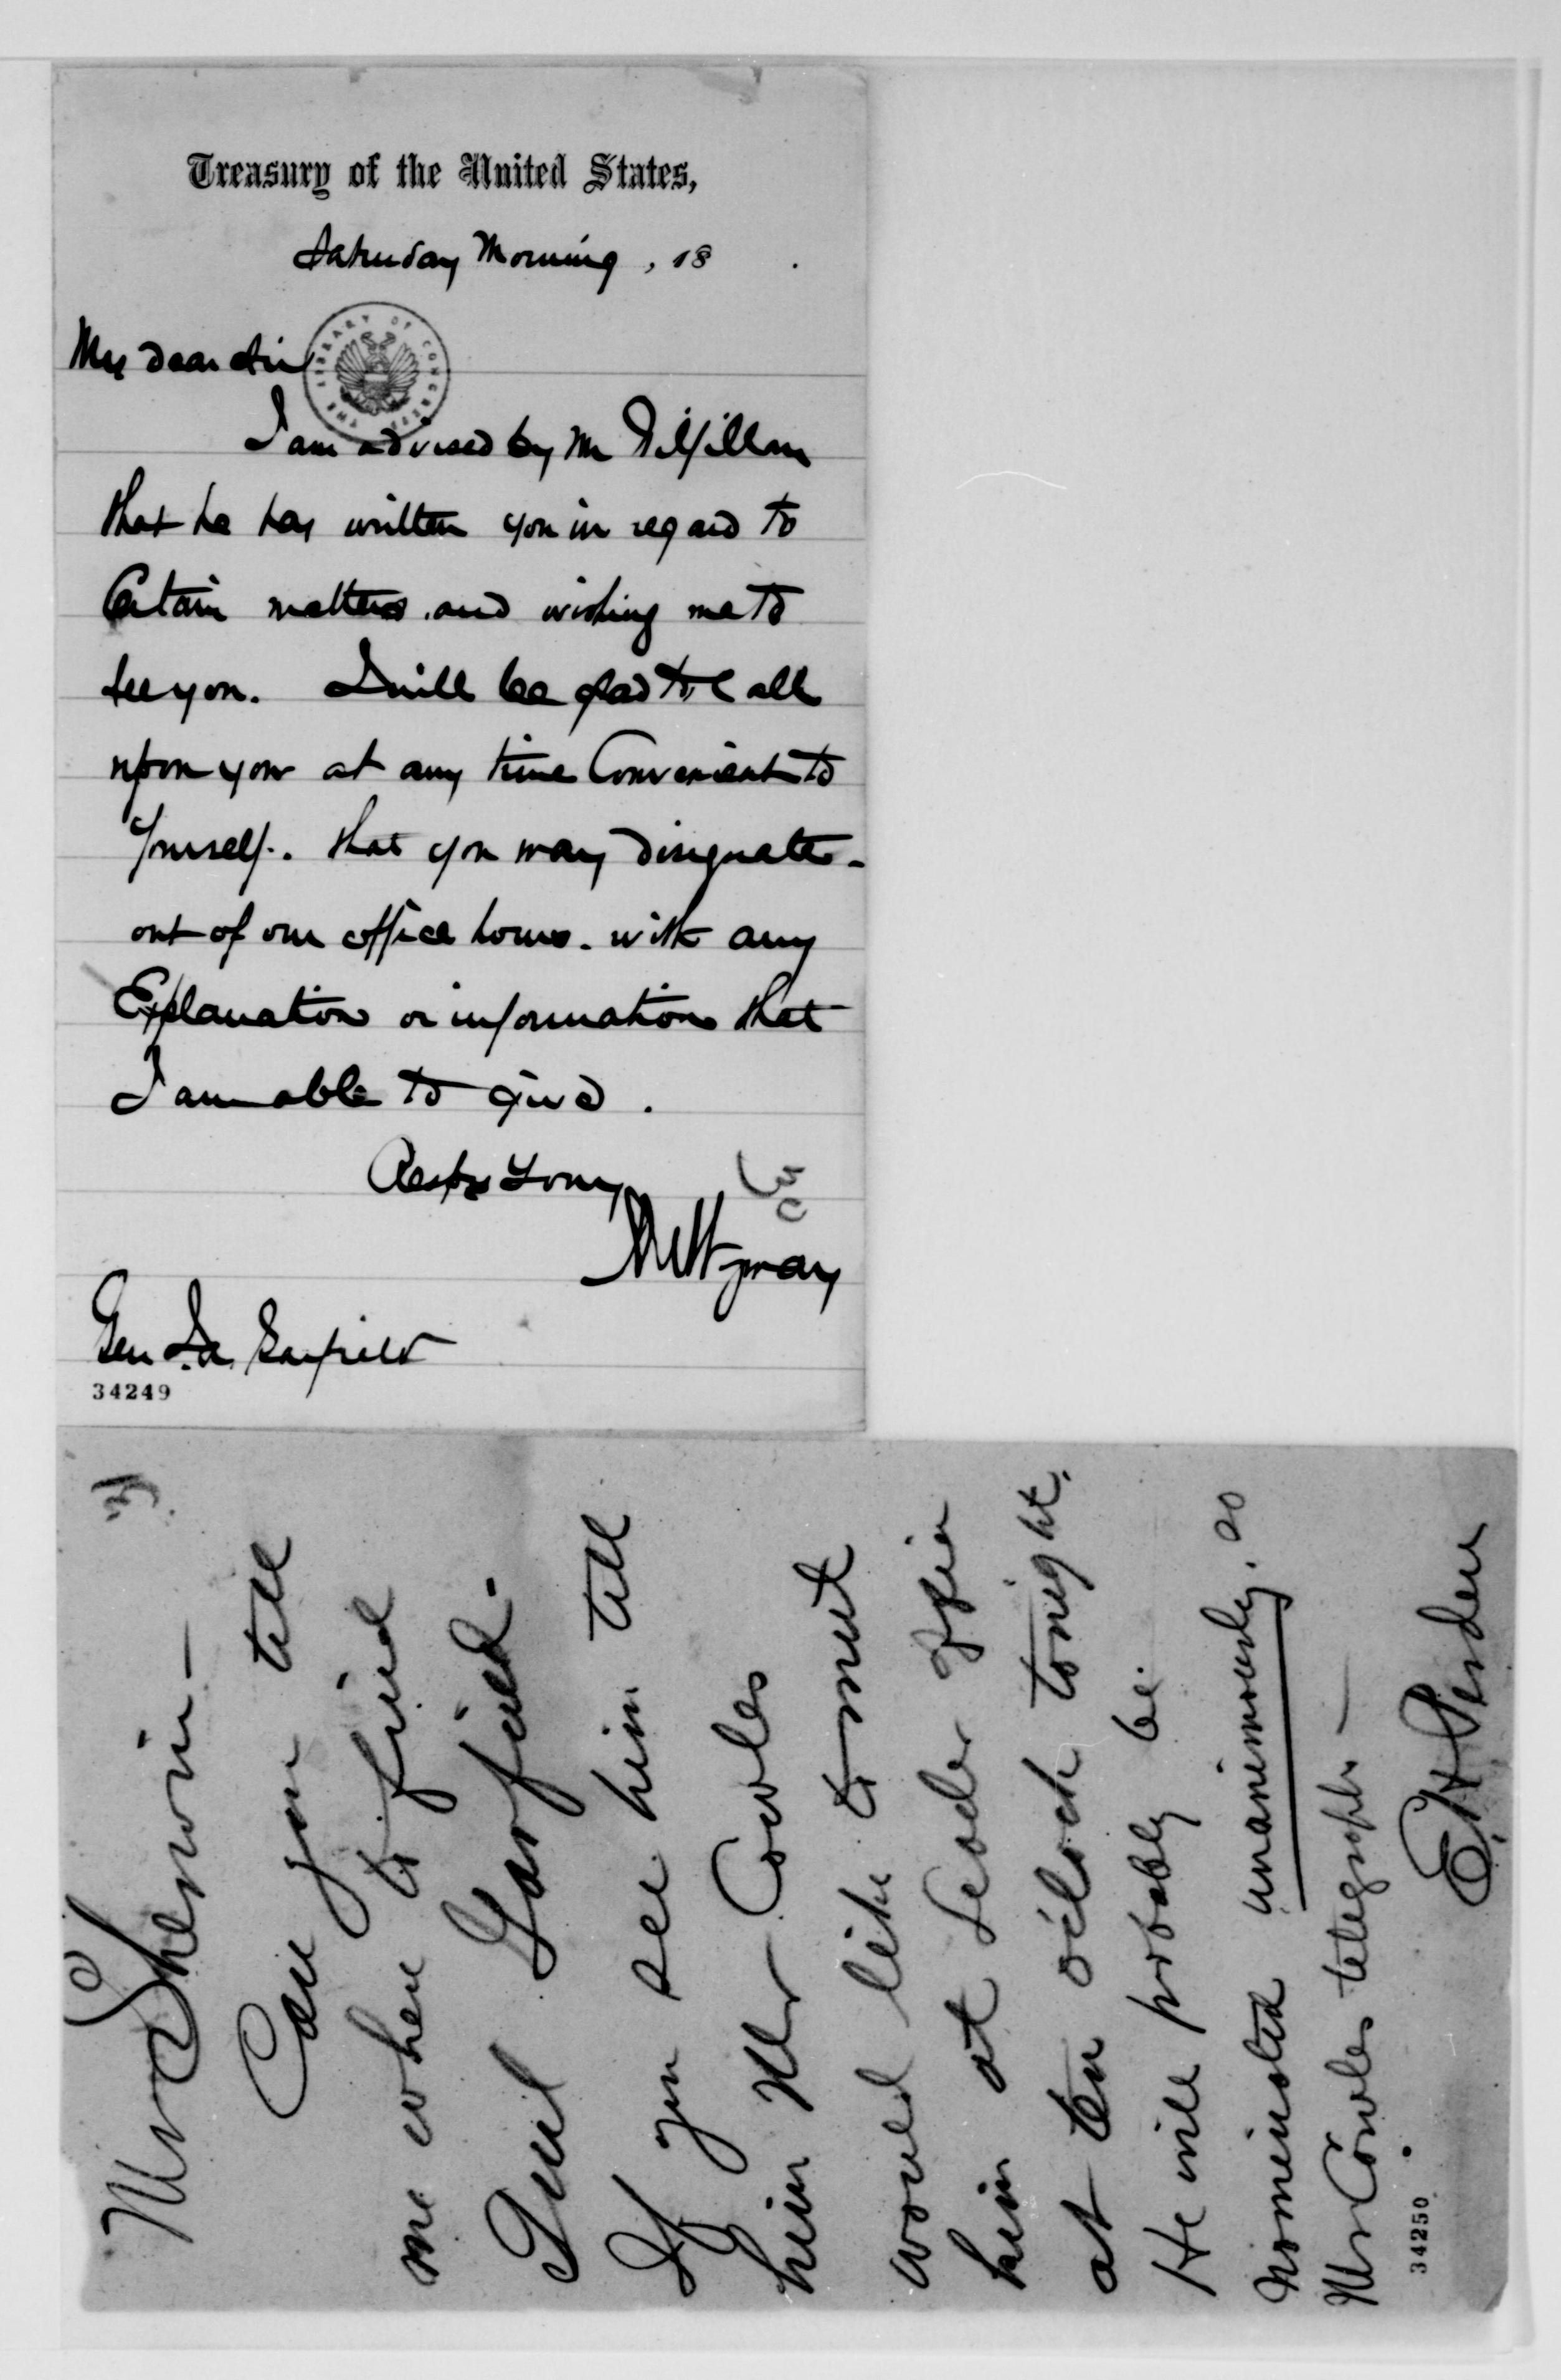 Treasury of the United States,
Saturday Morning, 18 .
My Dear Sir
THE LIBRARY OF CONGRESS
I am advised by Mr Gilfillan
that he has written you in regard to
Certain matters. and wishing me to
see you. I will be glad to Call
upon you at any time Convenient to
Yourself. that you may designate -
out of our office hours. with any
Explanation or information that
I am able to give.
Yours
Wyman
Gen Garfield
34249
Mr Sherwin —
Can you tell
me where to find
Genl Garfield.
If you see him tell
him Mr Cowles
would like to meet
him at Leader Office
at ten o'clock tonight.
He will probably be
nominated unanimously, so
Mr Cowles telegraphs —
34250